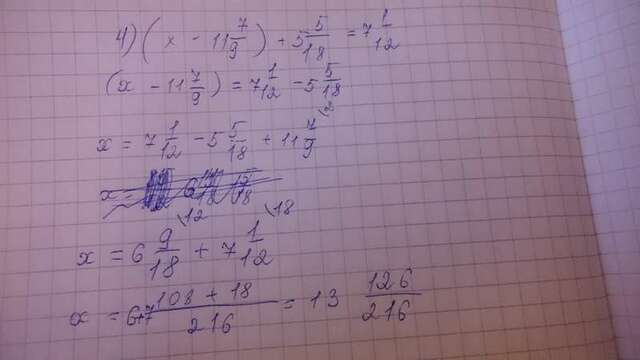 4) (x - 11 7/9) + 5 5/18 = 7 1/12
(x - 11 7/9) = 7 1/12 - 5 5/18
x = 7 1/12 - 5 5/18 + 11 7/9 \2
x =
x = 6 9/18 \12 + 7 1/12 \18
x = 6+7 108 + 18/216 = 13 126/216